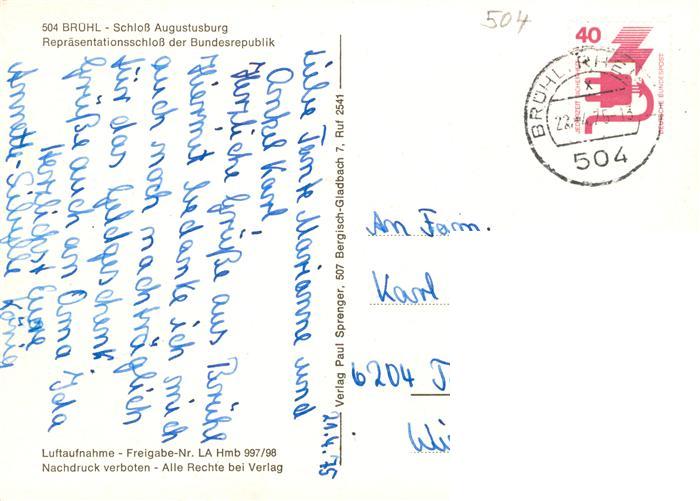 504 BRÜHL - Schloß Augustusburg
Repräsentationsschloß der Bundesrepublik
21.4.75
Liebe Tante Marianne und
Onkel Karl!
Herzliche Grüße aus Brühl
Hiermit bedanke ich mich
auch noch nachträglich
für das Geldgeschenk.
Grüße auch an Oma Ida
Herzlichst Eure
König
Luftaufnahme - Freigabe-Nr. LA Hmb 997/98
Nachdruck verboten - Alle Rechte bei Verlag
Verlag Paul Sprenger, 507 Bergisch-Gladbach 7, Ruf 2541
504
40
JEDERZEIT SICHERHEIT
DEUTSCHE BUNDESPOST
BRÜHL, RHEINL
504
An Fam.
Karl
6204 T